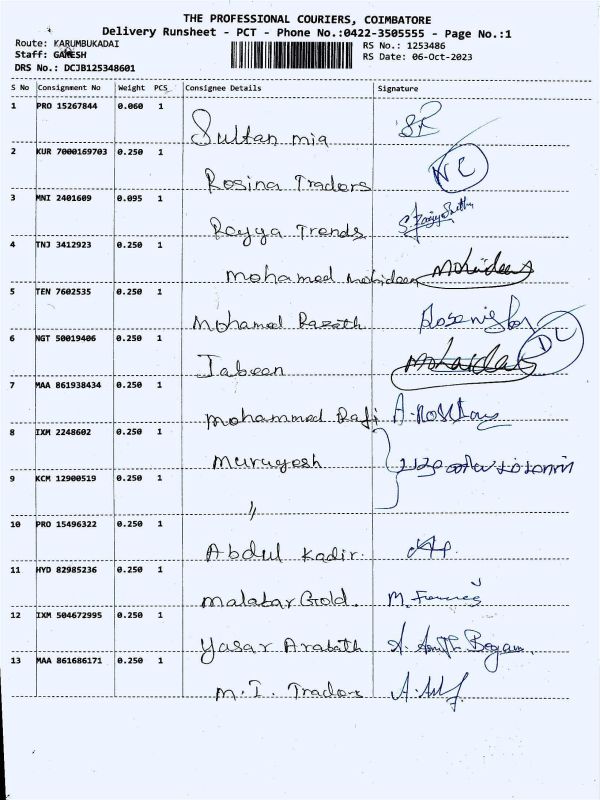 THE PROFESSIONAL COURIERS, COIMBATORE
Delivery Runsheet - PCT - Phone No.:0422-3505555 - Page No.:1
Route: KARUMBUKADAI
Staff: GANESH
DRS No.: DCJB125348601
RS No.: 1253486
RS Date: 06-Oct-2023
S No Consignment No Weight PCS Consignee Details Signature
1 PRO 15267844 0.060 1
Sultan mia
2 KUR 7000169703 0.250 1
Rosina Traders NC
3 MNI 2401609 0.095 1
Rayya Trends
4 TNJ 3412923 0.250 1
Mohamed Mohideen Mohideen
5 TEN 7602535 0.250 1
Mohamed Razath
6 NGT 50019406 0.250 1 DL
Jabeen
7 MAA 861938434 0.250 1
Mohammed Rafi
8 IXM 2248602 0.250 1
Murugesh
9 KCM 12900519 0.250 1
〃
10 PRO 15496322 0.250 1
Abdul Kadir.
11 HYD 82985236 0.250 1
Malabar Gold.
12 IXM 504672995 0.250 1
Yasar Arabath
13 MAA 861686171 0.250 1
M.I. Traders